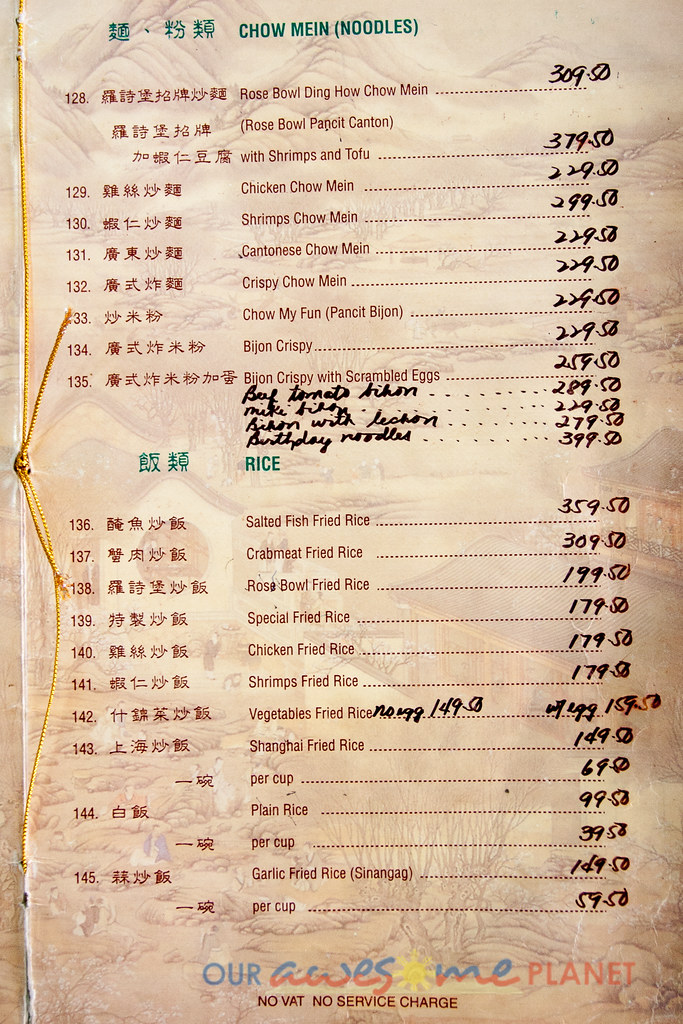 麵、粉類 CHOW MEIN (NOODLES)
128. 羅詩堡招牌炒麵 Rose Bowl Ding How Chow Mein 309.50
羅詩堡招牌 (Rose Bowl Pancit Canton)
加蝦仁豆腐 with Shrimps and Tofu 379.50
129. 雞絲炒麵 Chicken Chow Mein 229.50
130. 蝦仁炒麵 Shrimps Chow Mein 299.50
131. 廣東炒麵 Cantonese Chow Mein 229.50
132. 廣式炸麵 Crispy Chow Mein 229.50
33. 炒米粉 Chow My Fun (Pancit Bijon) 229.50
134. 廣式炸米粉 Bijon Crispy 229.50
135. 廣式炸米粉加蛋 Bijon Crispy with Scrambled Eggs 259.50
Beef tomato bihon 289.50
miki bihon 229.50
Bihon with lechon 279.50
Birthday noodles 399.50
飯類 RICE
136. 醃魚炒飯 Salted Fish Fried Rice 359.50
137. 蟹肉炒飯 Crabmeat Fried Rice 309.50
138. 羅詩堡炒飯 Rose Bowl Fried Rice 199.50
139. 特製炒飯 Special Fried Rice 179.50
140. 雞絲炒飯 Chicken Fried Rice 179.50
141. 蝦仁炒飯 Shrimps Fried Rice 179.50
142. 什錦菜炒飯 Vegetables Fried Rice no egg 149.50 w/ egg 159.50
143. 上海炒飯 Shanghai Fried Rice 149.50
一碗 per cup 69.50
144. 白飯 Plain Rice 99.50
一碗 per cup 39.50
145. 蒜炒飯 Garlic Fried Rice (Sinangag) 149.50
一碗 per cup 59.50
OUR awesome PLANET
NO VAT NO SERVICE CHARGE